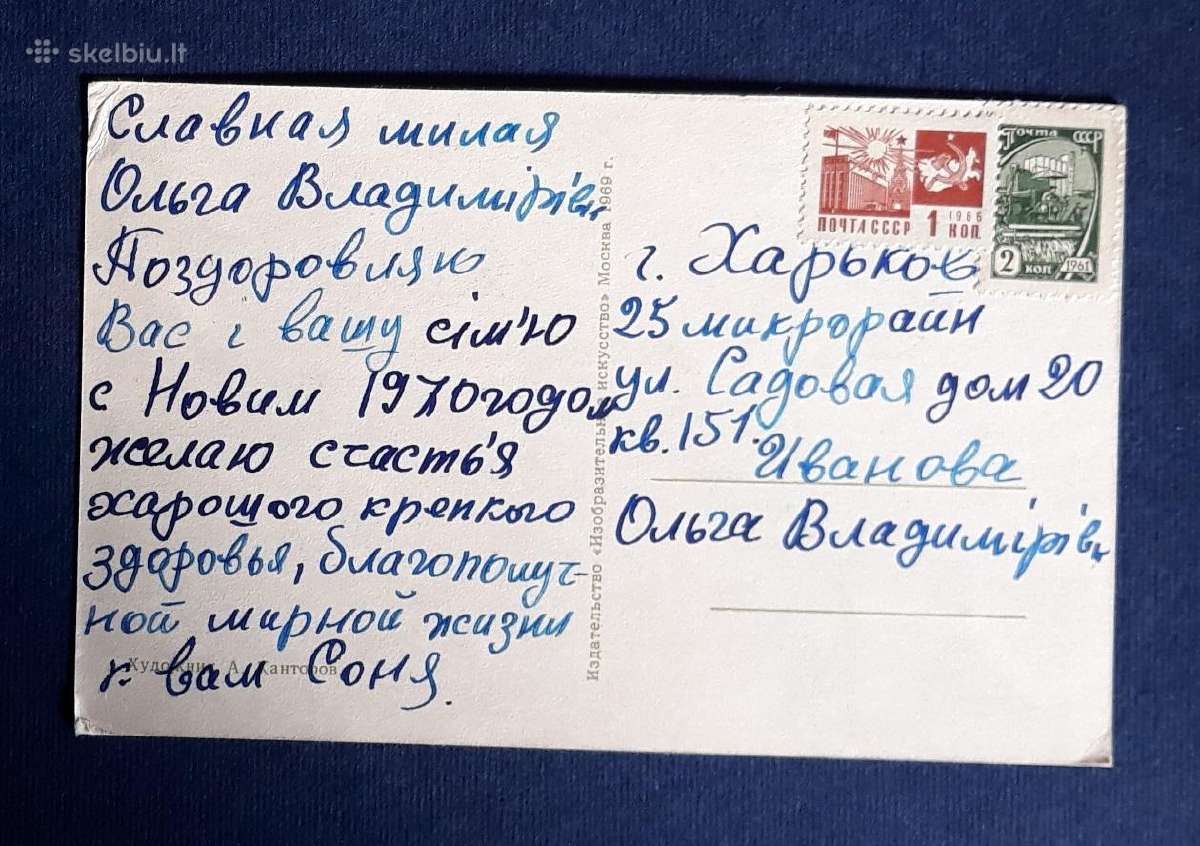 skelbiu.lt
Славная милая
Ольга Владимірівн
Поздоровляю
Вас і вашу сім'ю
с Новим 1970 годом
желаю счасть'я
харошого крепкого
здоровья, благополуч-
ной мирной жизни
к вам Соня.
Художник А. Канторов
Издательство «Изобразительное искусство» Москва 1969 г.
ПОЧТА СССР 1 КОП. 1966
Почта СССР
2 КОП 1961
г. Харьков
25 микрораин
ул. Садовая дом 20
кв. 151.
Иванова
Ольга Владимірівн